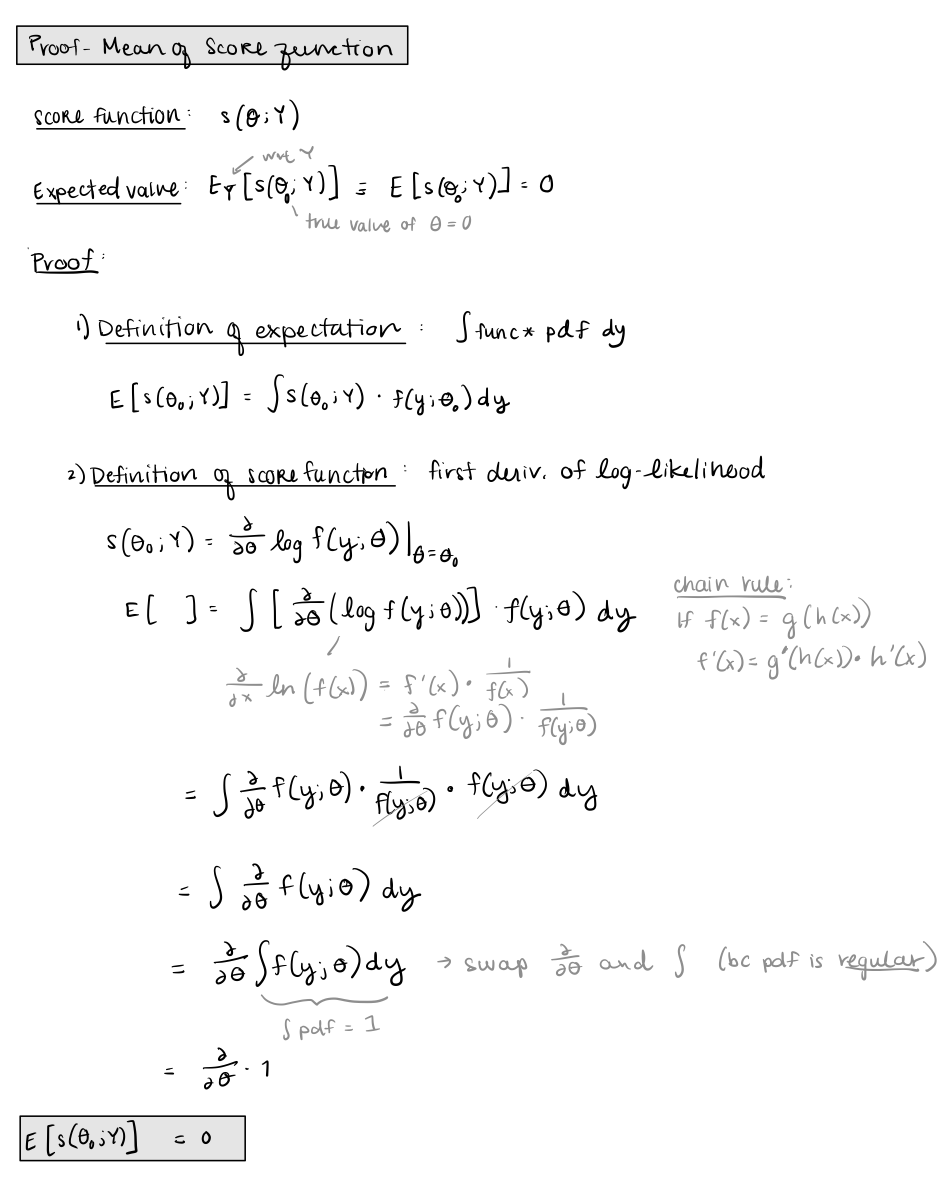 Proof - Mean of Score function
score function: s(θ;Y)
wrt Y
Expected value: E_Y[s(θ₀;Y)] ≡ E[s(θ₀;Y)] = 0
true value of θ = 0
Proof:
1) Definition of expectation: ∫ func * pdf dy
E[s(θ₀;Y)] = ∫ s(θ₀;Y) · f(y;θ₀) dy
2) Definition of score function: first deriv. of log-likelihood
s(θ₀;Y) = ∂/∂θ log f(y;θ)|_θ=θ₀
E[ ] = ∫ [∂/∂θ (log f(y;θ))] · f(y;θ) dy
chain rule:
If f(x) = g(h(x))
f'(x) = g'(h(x)) · h'(x)
∂/∂x ln(f(x)) = f'(x) · 1/f(x)
= ∂/∂θ f(y;θ) · 1/f(y;θ)
= ∫ ∂/∂θ f(y;θ) · 1/f(y;θ) · f(y;θ) dy
= ∫ ∂/∂θ f(y;θ) dy
= ∂/∂θ ∫ f(y;θ) dy → swap ∂/∂θ and ∫ (bc pdf is regular)
∫ pdf = 1
= ∂/∂θ · 1
E[s(θ₀;Y)] = 0